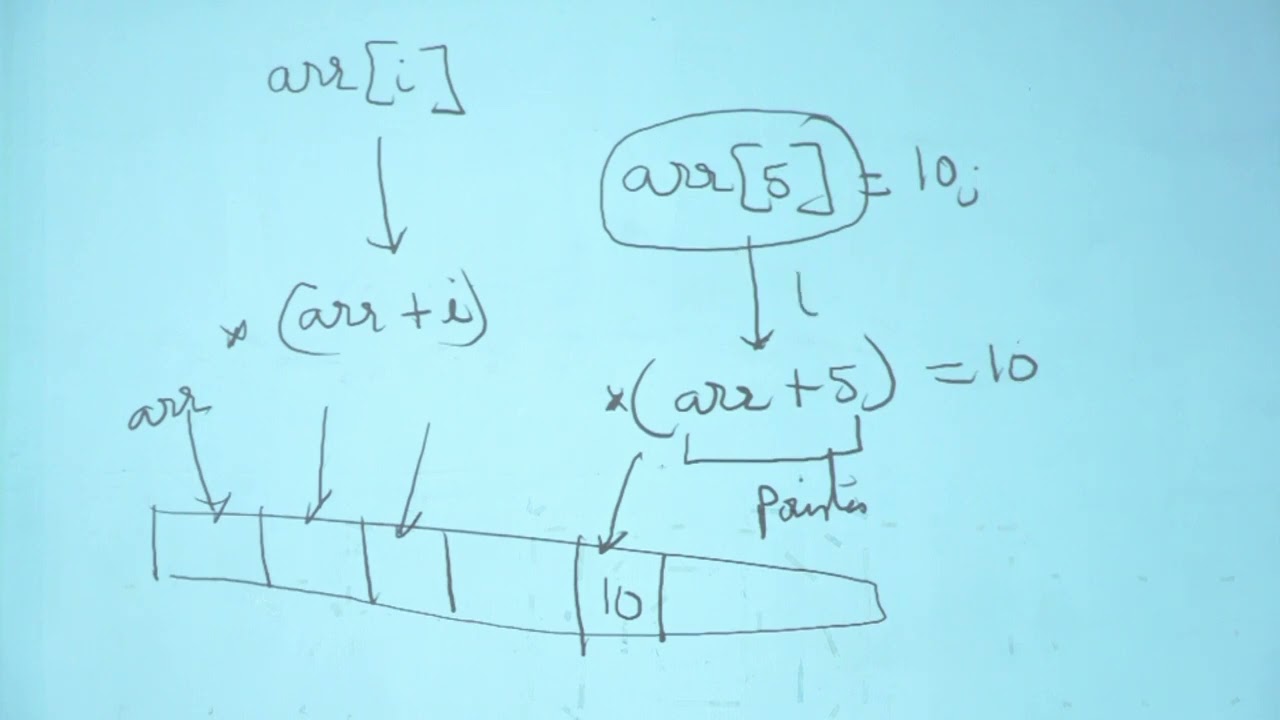 arr[i]
arr[5] = 10;
*(arr + i)
*(arr + 5) = 10
arr
Pointer
10